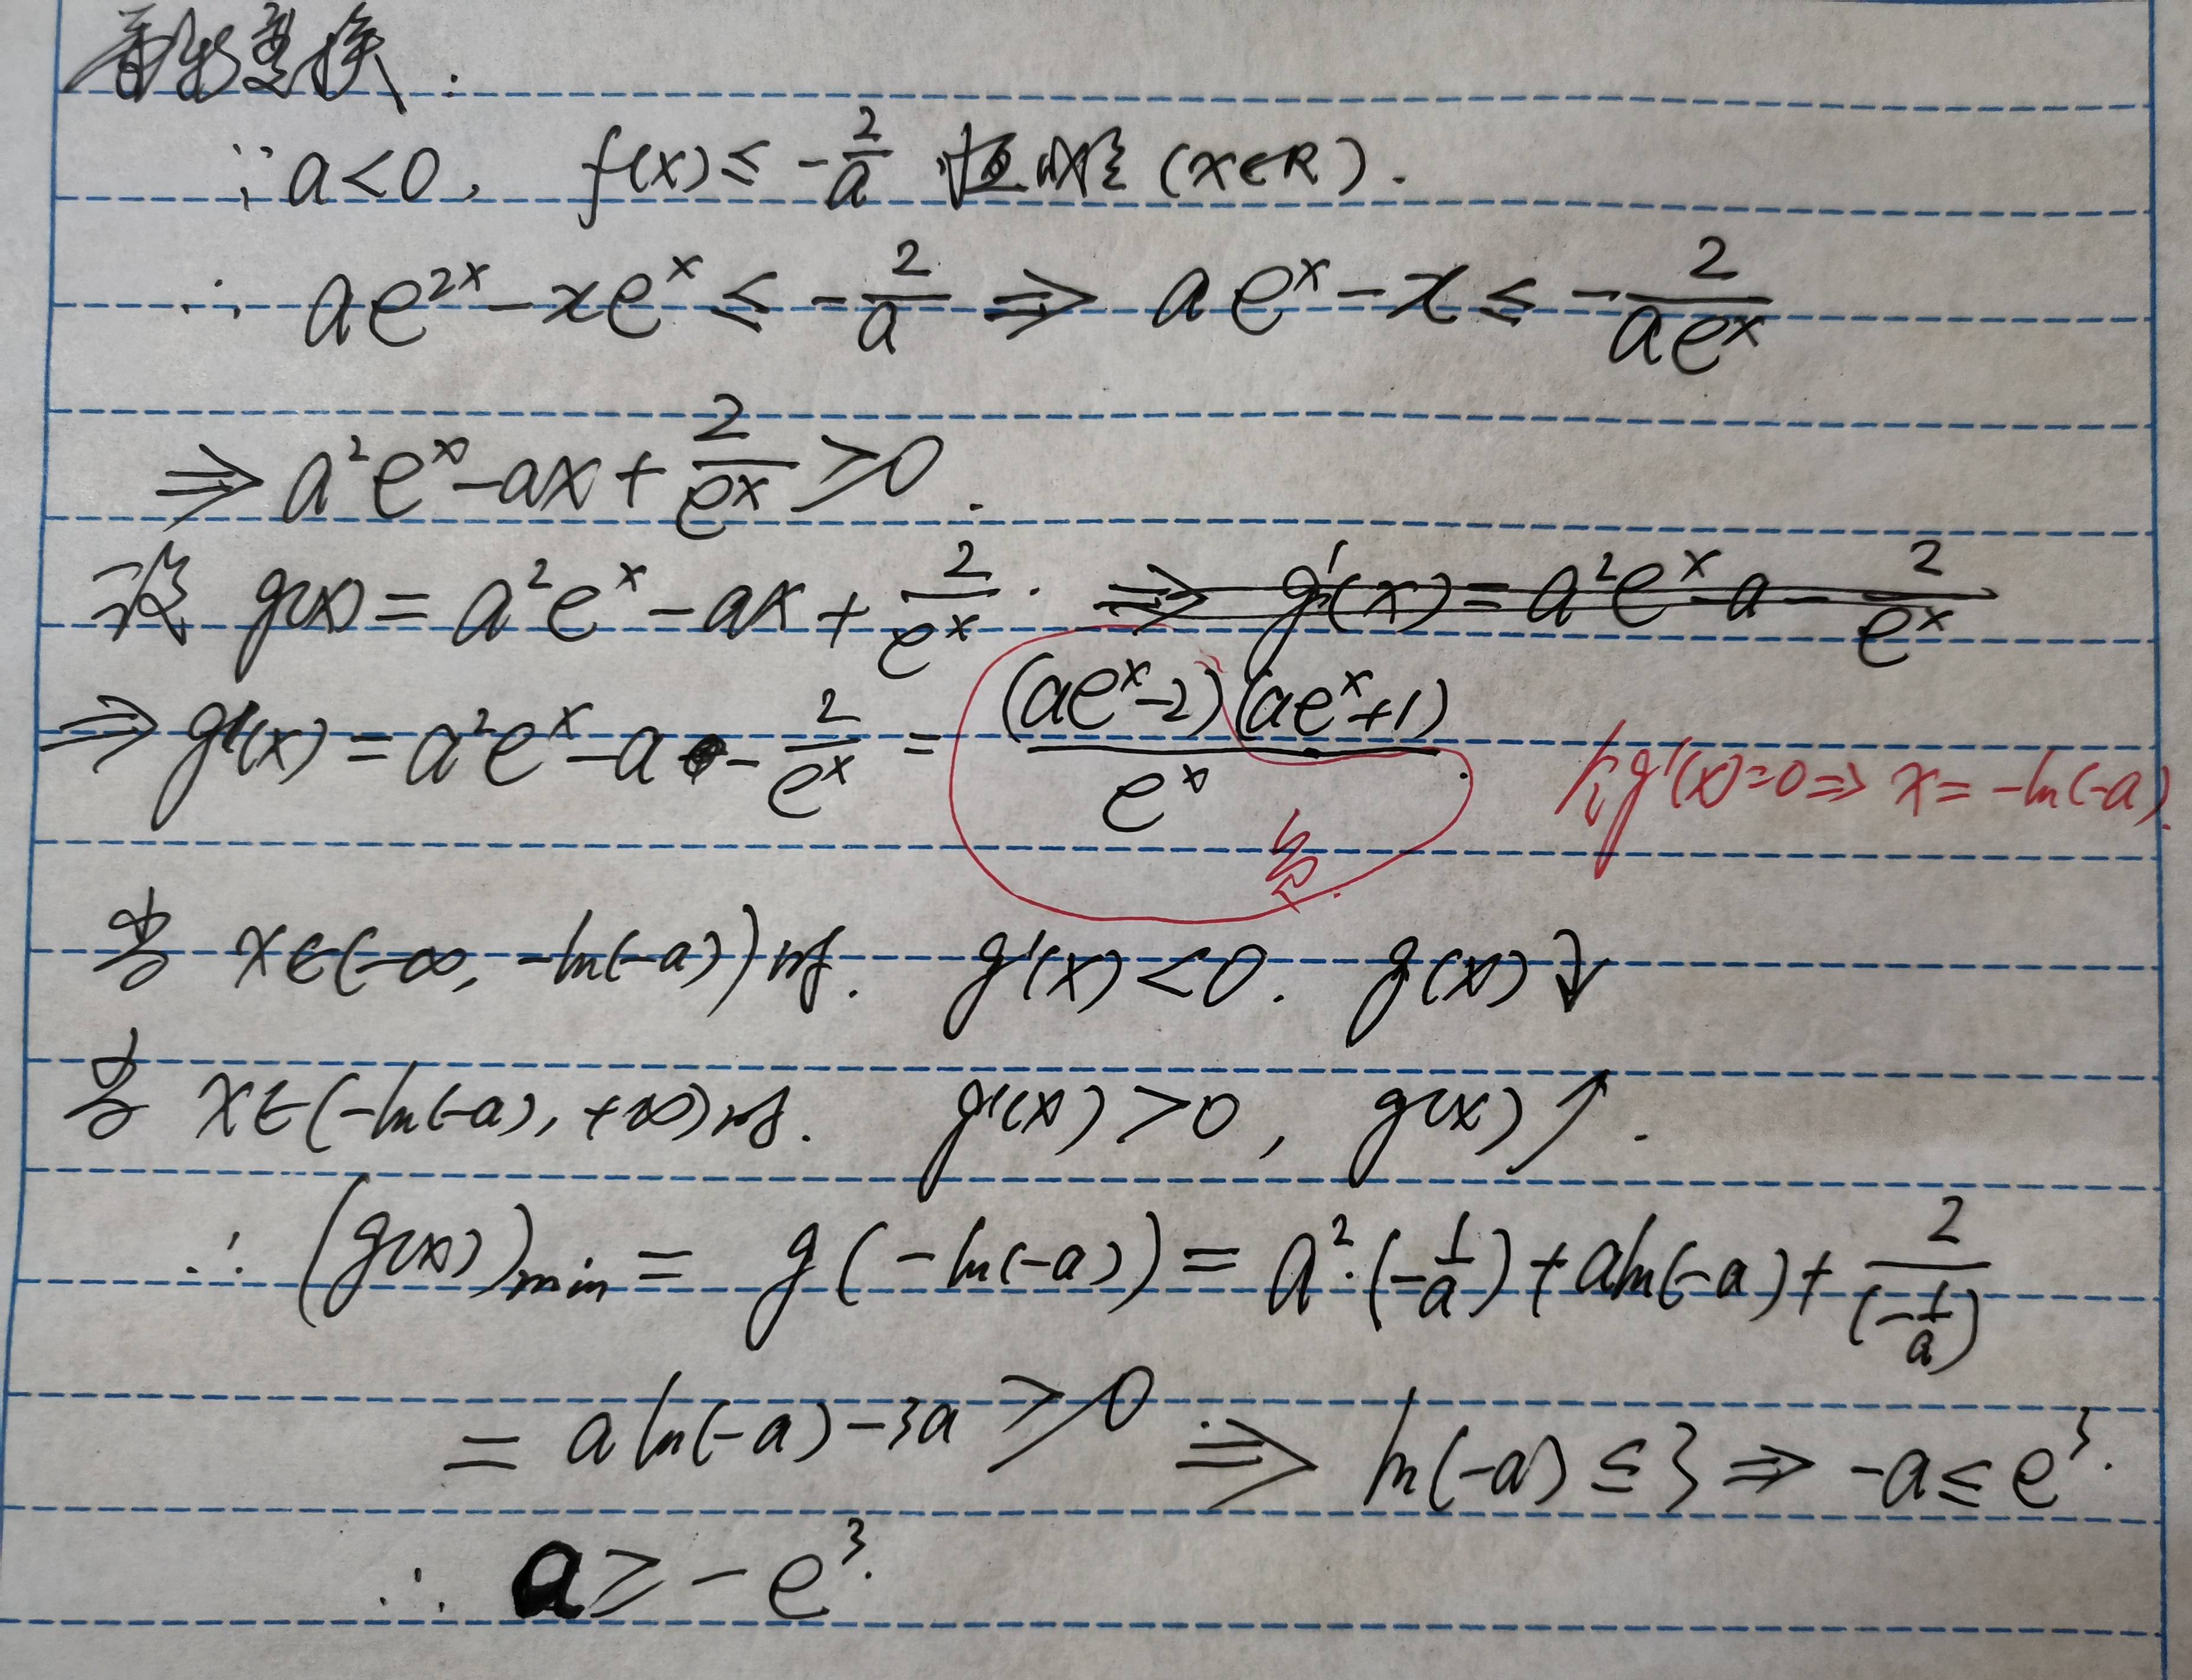 看形变换：
∵ a<0, f(x)≤-2/a 恒成立 (x∈R).
∴ ae^{2x}-xe^x≤-2/a ⇒ ae^x-x≤-2/(ae^x)
⇒ a²e^x-ax+2/e^x≥0.
设 g(x)=a²e^x-ax+2/e^x. ⇒ g'(x)=a²e^x-a-2/e^x
⇒ g'(x)=a²e^x-a-2/e^x=(ae^x-2)(ae^x+1)/e^x. 令g'(x)=0⇒x=-ln(-a).
负.
当 x∈(-∞, -ln(-a))时. g'(x)<0. g(x)↓
当 x∈(-ln(-a), +∞)时. g'(x)>0, g(x)↑.
∴ (g(x))min=g(-ln(-a))=a²·(-1/a)+aln(-a)+2/(-1/a)
=aln(-a)-3a≥0 ⇒ ln(-a)≤3 ⇒ -a≤e³.
∴ a≥-e³.